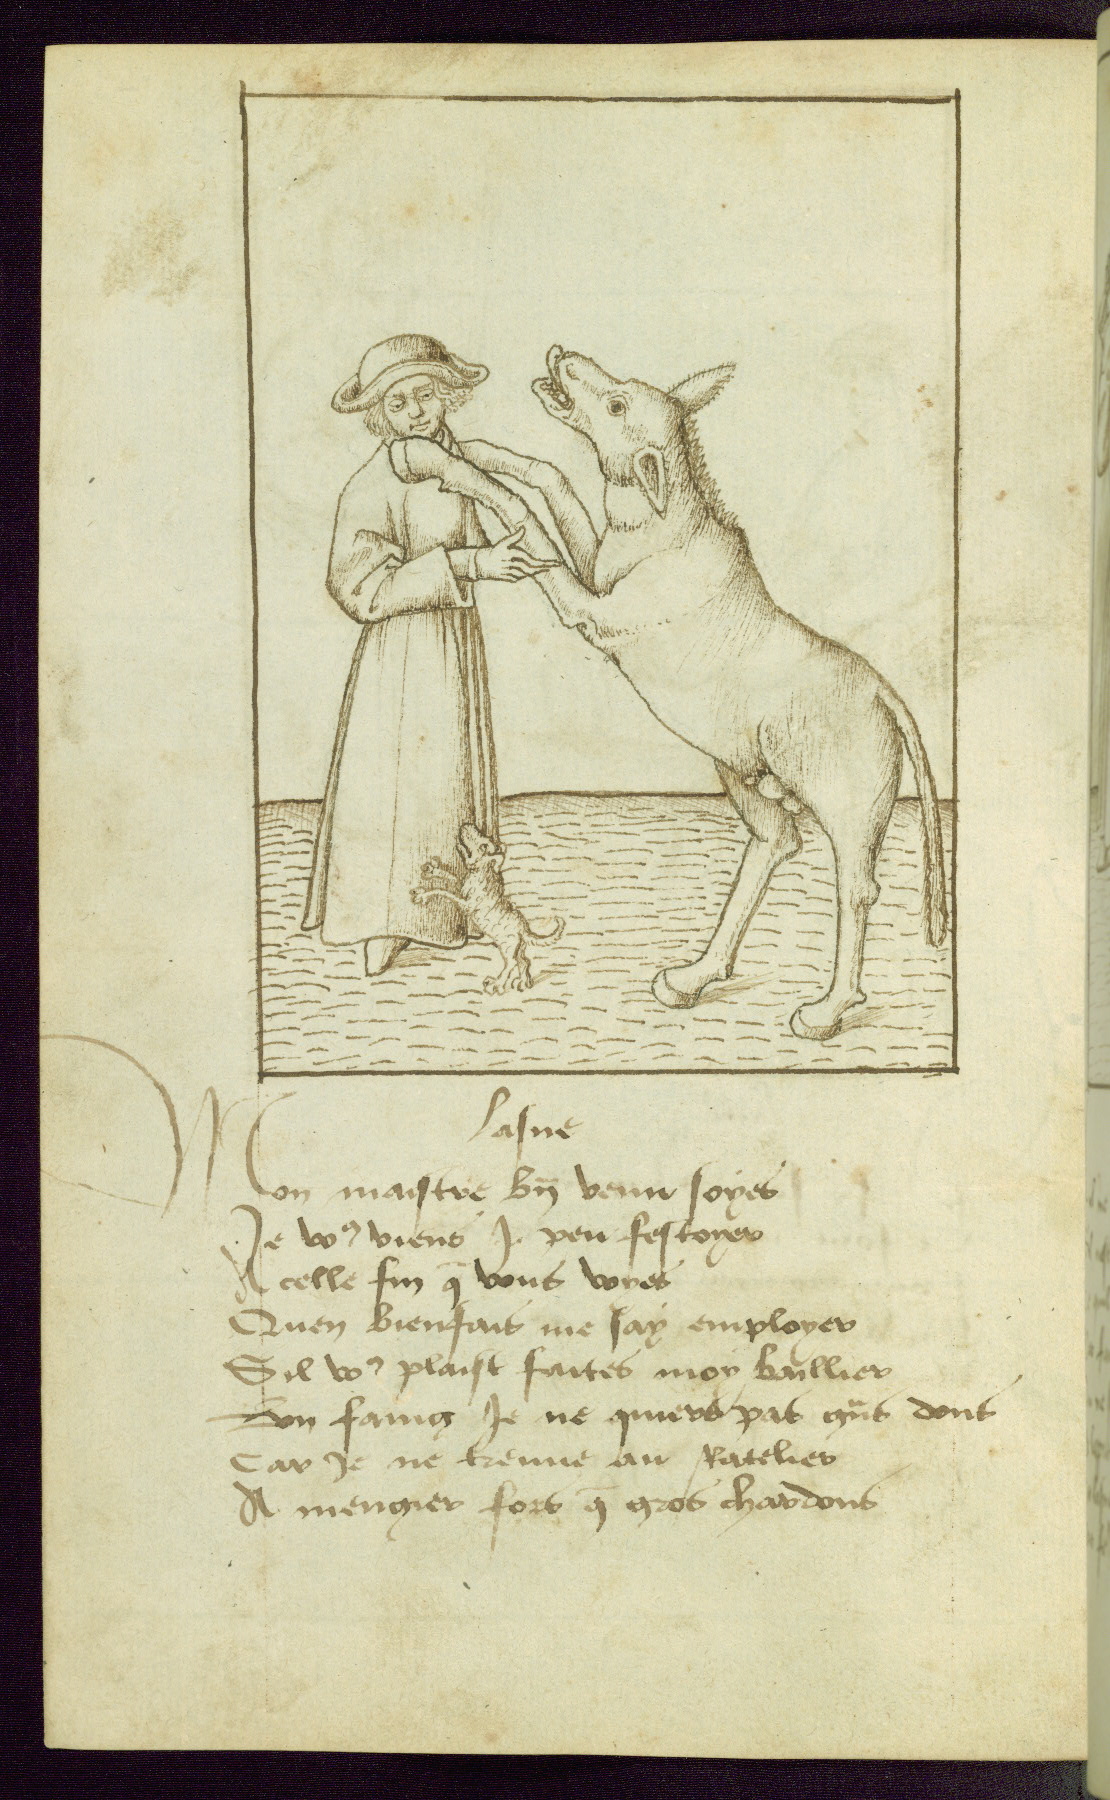 Lasne
Mon maistre bñ venu soyes
Je vo⁹ viens .j. peu festoyer
A celle fin q̄ vous voyes
Quen bienfais me say employer
Sil vo⁹ plaist faites moy baillier
Du faing Je ne quiers pas gñs dons
Car Je ne treuue au Ratelier
A mengier fors q̄ gros chardons